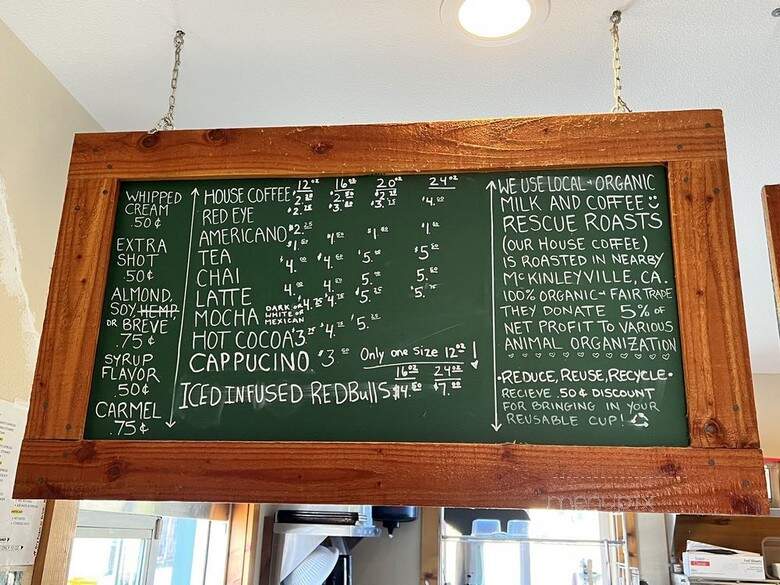 WHIPPED
CREAM
.50¢
EXTRA
SHOT
.50¢
ALMOND,
SOY, HEMP,
OR BREVE
.75¢
SYRUP
FLAVOR
.50¢
CARMEL
.75¢
12oz 16oz 20oz 24oz
HOUSE COFFEE
RED EYE
AMERICANO $2.25
TEA $1.50 $1.50 $1.50 $1.50
CHAI $4. $4. $5. $5.
LATTE 4. 4. 5. 5.
MOCHA DARK OR WHITE OR MEXICAN $4.75 $4. $5. $5.
HOT COCOA $3. $4. $5.
CAPPUCINO $3.50 Only one size 12oz!
16oz 24oz
ICED INFUSED REDBullS $4. $7.
WE USE LOCAL + ORGANIC
MILK AND COFFEE
RESCUE ROASTS
(OUR HOUSE COFFEE)
IS ROASTED IN NEARBY
McKINLEYVILLE, CA.
100% ORGANIC + FAIR TRADE
THEY DONATE 5% OF
NET PROFIT TO VARIOUS
ANIMAL ORGANIZATION
•REDUCE, REUSE, RECYCLE•
RECIEVE .50¢ DISCOUNT
FOR BRINGING IN YOUR
REUSABLE CUP!
menupix